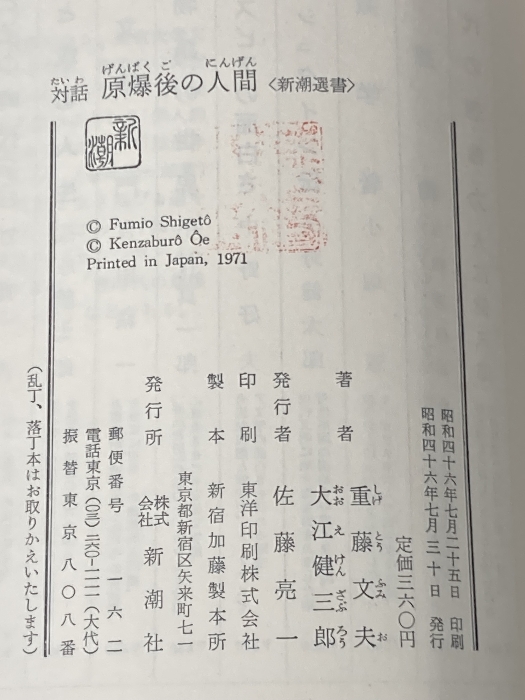 対話 原爆後の人間 〈新潮選書〉
たいわ げんばく ご にんげん
新潮
© Fumio Shigetô
© Kenzaburô Ôe
Printed in Japan, 1971
昭和四十六年七月二十五日 印刷
昭和四十六年七月三十日 発行
定価三六〇円
著者 重藤文夫
しげ とう ふみ お
大江健三郎
おお え けん ざぶ ろう
発行者 佐藤亮一
印刷 東洋印刷株式会社
製本 新宿加藤製本所
東京都新宿区矢来町七一
発行所 株式会社 新潮社
郵便番号 一六二
電話東京(〇三)二六〇-一一一一(大代)
振替東京八〇八番
(乱丁、落丁本はお取りかえいたします)